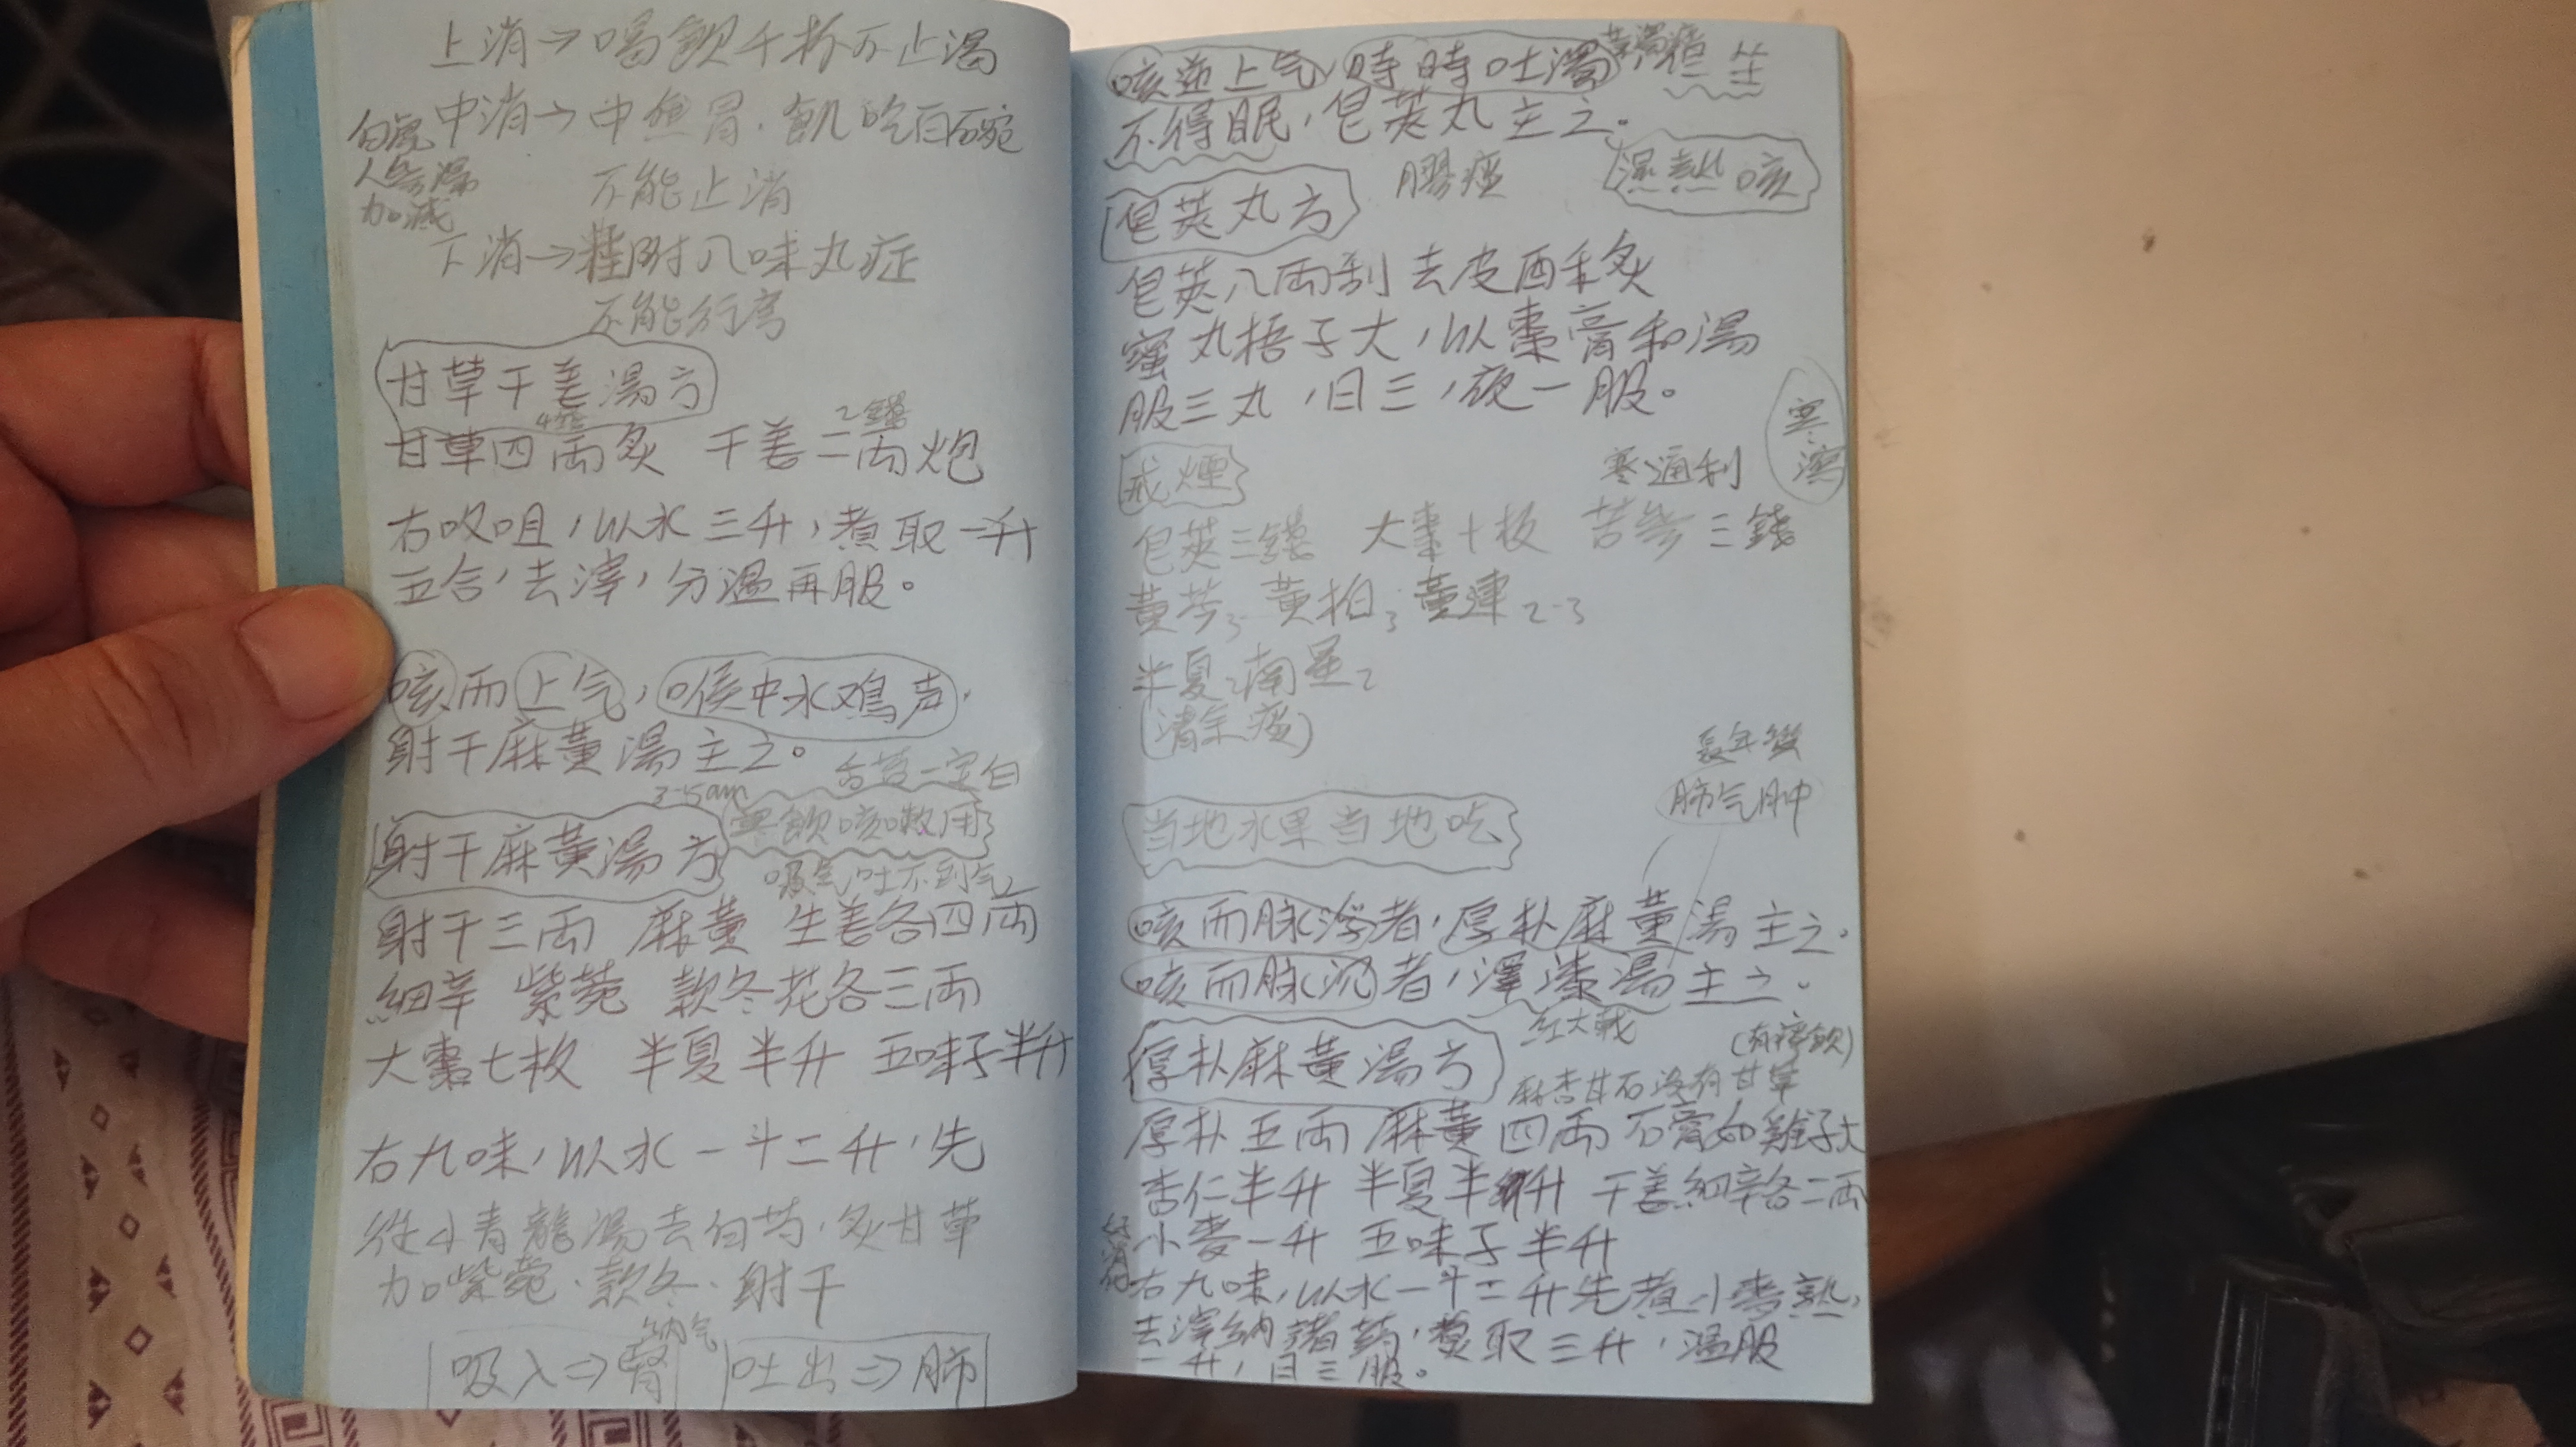 上消→喝飲千杯不止渴
中消→中焦胃.飢吃百碗
白虎
人参湯
加減
不能止消
下消→桂附八味丸症
不能行房
甘草干姜湯方
4錢 2錢
甘草四兩炙 干姜二兩炮
右㕮咀,以水三升,煮取一升
五合,去滓,分溫再服。
咳而上气,喉中水鳮声,
射干麻黃湯主之。
舌苔一定白
3-5am
射干麻黃湯方
寒飲咳嗽用
吸气吐不到气
射干三兩 麻黃 生姜各四兩
細辛 紫菀 款冬花各三兩
大棗七枚 半夏半升 五味子半升
右九味,以水一斗二升,先
從小青龍湯去白芍.炙甘草
加紫菀.款冬.射干
納气
吸入⇒腎 吐出⇒肺
咳逆上气,時時吐濁 坐
不得眠,皂莢丸主之。
膠痰 濕熱咳
皂莢丸方
皂莢八兩刮去皮酉禾炙
蜜丸梧子大,以棗膏和湯
服三丸,日三,夜一服。
寒濕
戒煙 寒通利
皂莢三錢 大棗十枚 苦參三錢
黃芩3 黃柏3 黃連2-3
半夏2南星2
(清余痰)
長年後
肺气肿
当地水果当地吃
咳而脉浮者,厚朴麻黃湯主之.
咳而脉沉者,澤漆湯主之.
紅大戟
厚朴麻黃湯方 (有痰飲)
麻杏甘石沒有甘草
厚朴五兩 麻黃四兩 石膏如雞子大
杏仁半升 半夏半升 干姜細辛各二兩
小麥一升 五味子半升
右九味,以水一斗二升先煮小麥熟,
去滓納諸药,煮取三升,溫服
一升,日三服。